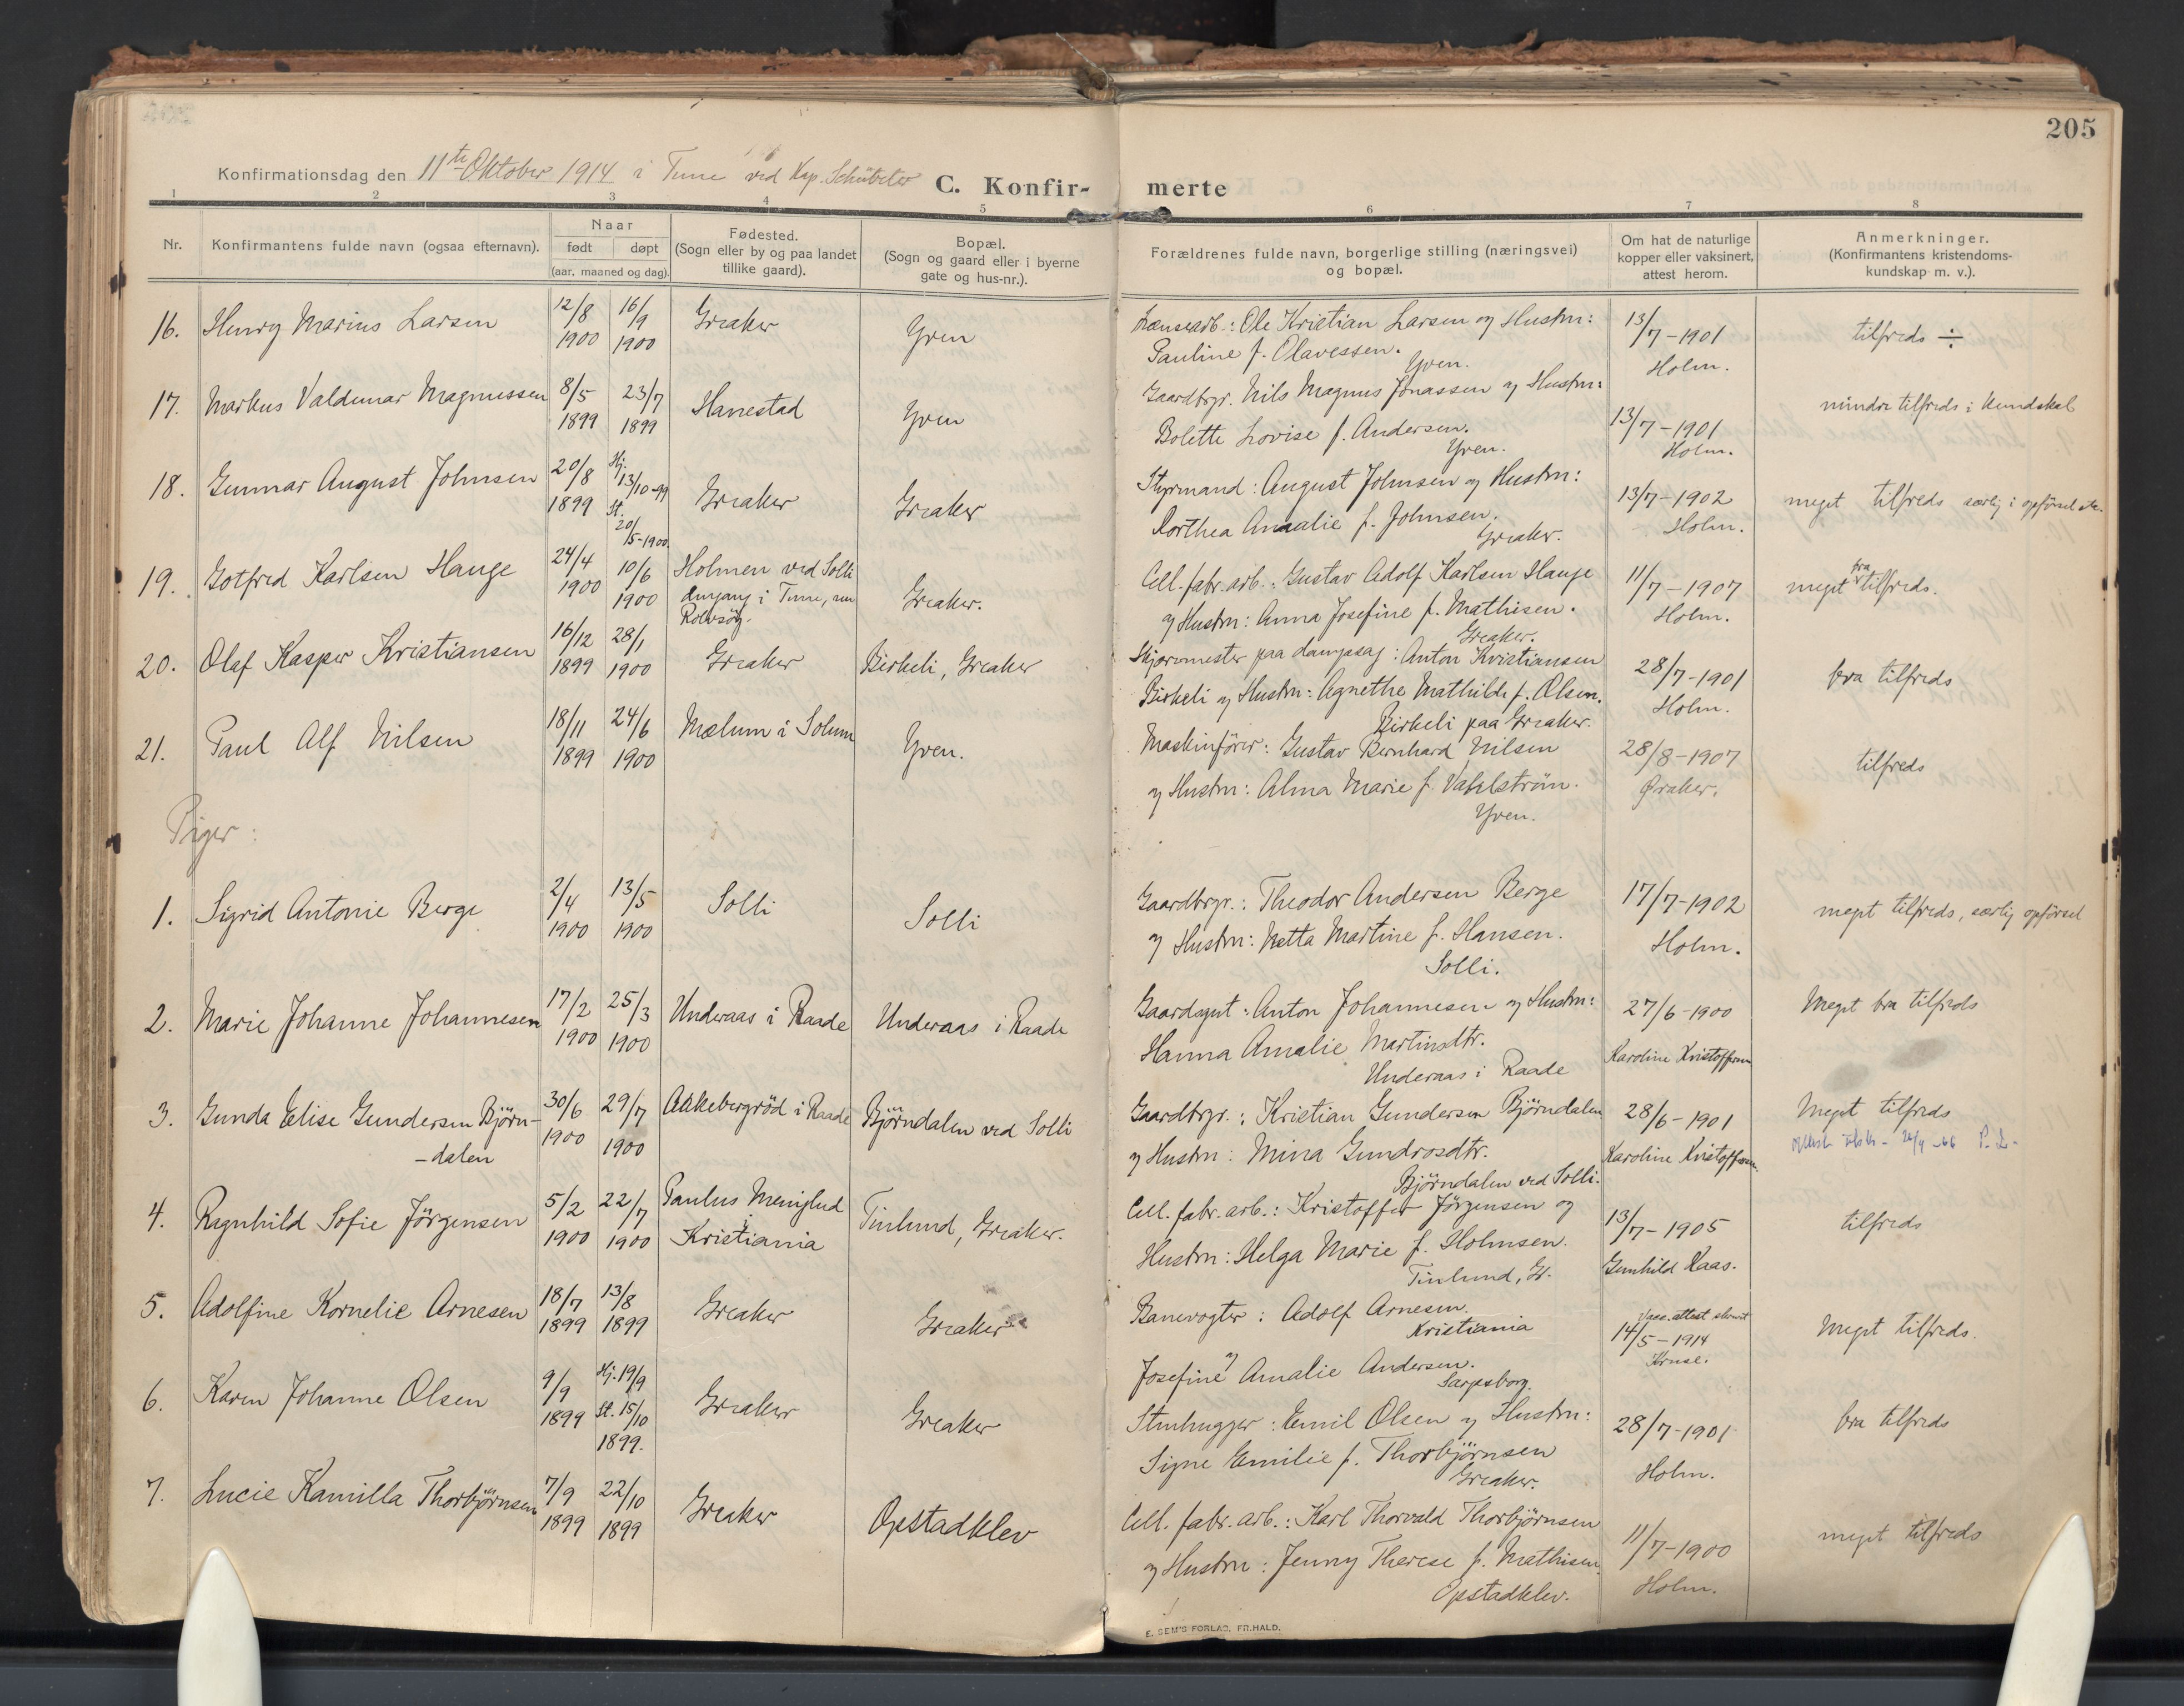 205
Konfirmationsdag den 11te Oktober 1914 i Tune ved Kap. Schübeler
C. Konfir- merte
1 2 3 4 5 6 7 8
Nr.
Konfirmantens fulde navn (ogsaa efternavn).
Naar
født døpt
(aar, maaned og dag).
Fødested.
(Sogn eller by og paa landet
tillike gaard).
Bopæl.
(Sogn og gaard eller i byerne
gate og hus-nr.).
Forældrenes fulde navn, borgerlige stilling (næringsvei)
og bopæl.
Om hat de naturlige
kopper eller vaksinert,
attest herom.
Anmerkninger.
(Konfirmantens kristendoms-
kundskap m. v.).
16. Henry Marius Larsen
12/8 1900
16/9 1900
Greaker
Yven
Lænsearb.: Ole Kristian Larsen og Hustru:
Pauline f. Olavessen.
Yven.
13/7-1901
Holm.
tilfreds ÷
17. Markus Valdemar Magnussen
8/5 1899
23/7 1899
Hanestad
Yven
Gaardbrgr. Nils Magnus Jonassen og Hustru:
Bolette Lovise f. Andersen.
Yven.
13/7-1901
Holm.
mindre tilfreds i kundskab
18. Gunnar August Johnsen
20/8 1899
Hj. 13/10-99
St. 20/5-1900.
Greaker
Greaker
Styrmand: August Johnsen og Hustru:
Dorthea Amalie f. Johnsen.
Greaker.
13/7-1902
Holm.
meget tilfreds særlig i opførsel etc.
19. Gotfred Karlsen Hauge
24/4 1900
10/6 1900
Holmen ved Solli
dengang i Tune, nu
Rolvsöy.
Greaker.
Cell. fabr. arb.: Gustav Adolf Karlsen Hauge
og Hustru: Anna Josefine f. Mathisen.
Greaker.
11/7-1907
Holm.
meget bra tilfreds.
20. Olaf Kasper Kristiansen
16/12 1899
28/1 1900
Greaker
Birkeli, Greaker
Skjæremester paa dampsag: Anton Kristiansen
Birkeli og Hustru: Agnethe Mathilde f. Olsen.
Birkeli paa Greaker.
28/7-1901
Holm.
bra tilfreds
21. Paul Alf Nilsen
18/11 1899
24/6 1900
Mælum i Solum
Yven.
Maskinförer: Gustav Bernhard Nilsen
og Hustru: Alma Marie f. Vahlström.
Yven.
28/8-1907
Øraker.
tilfreds
Piger:
1. Sigrid Antonie Berge
2/4 1900
13/5 1900
Solli
Solli
Gaardbrgr.: Theodor Andersen Berge
og Hustru: Netta Martine f. Hansen.
Solli.
17/7-1902
Holm.
meget tilfreds, særlig opførsel
2. Marie Johanne Johannesen
17/2 1900
25/3 1900
Underaas i Raade
Underaas i Raade
Gaardsgut: Anton Johannesen og Hustru:
Hanna Amalie Martinsdtr.
Underaas i Raade
27/6-1900
Karoline Kristoffersen
Meget bra tilfreds
3. Gunda Elise Gundersen Björn-
-dalen
30/6 1900
29/7 1900
Aakebergröd i Raade
Björndalen ved Solli
Gaardbrgr.: Kristian Gundersen Björndalen
og Hustru: Mina Gundrosdtr.
Björndalen ved Solli.
28/6-1901
Karoline Kristoffersen
Meget tilfreds
4. Ragnhild Sofie Jörgensen
5/2 1900
22/7 1900
Paulus Menighed
i
Kristiania
Tinlund, Greaker.
Cell. fabr. arb.: Kristoffer Jörgensen og
Hustru: Helga Marie f. Holmsen.
Tinlund, Gr.
13/7-1905
Gunhild Kaas.
tilfreds
5. Adolfine Kornelie Arnesen
18/7 1899
13/8 1899
Greaker
Greaker
Banevogter: Adolf Arnesen.
Kristiania
og
Josefine Amalie Andersen.
Sarpsborg.
Vacc. attest
14/5-1914
Kruse.
Meget tilfreds.
6. Karen Johanne Olsen
9/9 1899
Hj. 19/9
St. 15/10
1899.
Greaker
Greaker
Stenhugger: Emil Olsen og Hustru:
Signe Emilie f. Thorbjörnsen
Greaker.
28/7-1901
Holm.
bra tilfreds
7. Lucie Kamilla Thorbjörnsen
7/9 1899
22/10 1899
Greaker
Opstadklev
Cell. fabr. arb.: Karl Thorvald Thorbjörnsen
og Hustru: Jenny Therese f. Mathisen.
Opstadklev.
11/7-1900
Holm.
meget tilfreds
E. SEM'S FORLAG, FR.HALD.